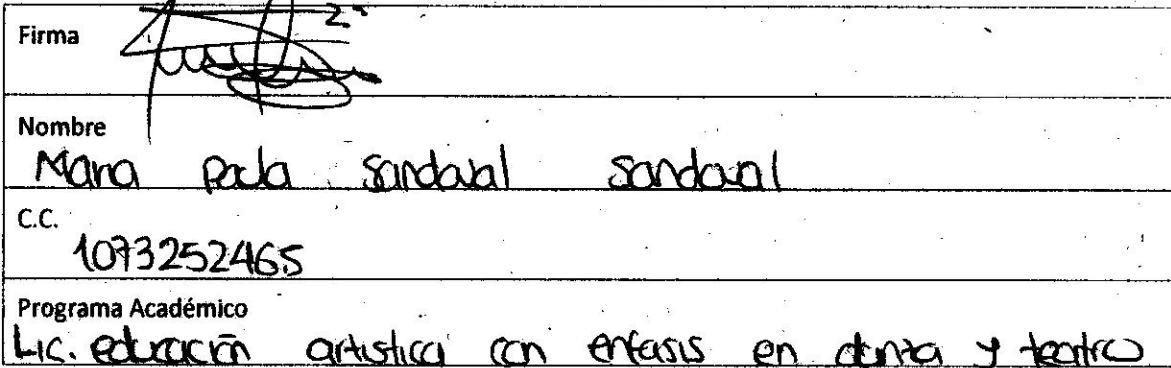 Firma
Nombre
Maria Paola Sandoval Sandoval
C.C.
1073252465
Programa Académico
Lic. educación artistica con enfasis en danza y teatro